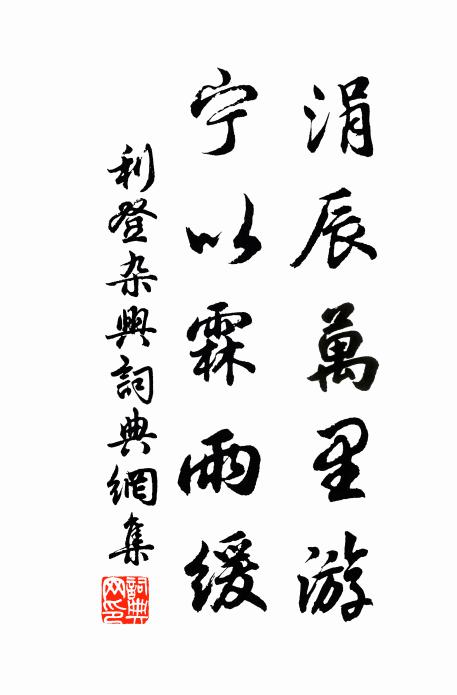 涓辰萬里游
宁以霖雨緩
利登杂興詞典網集
詞典网印